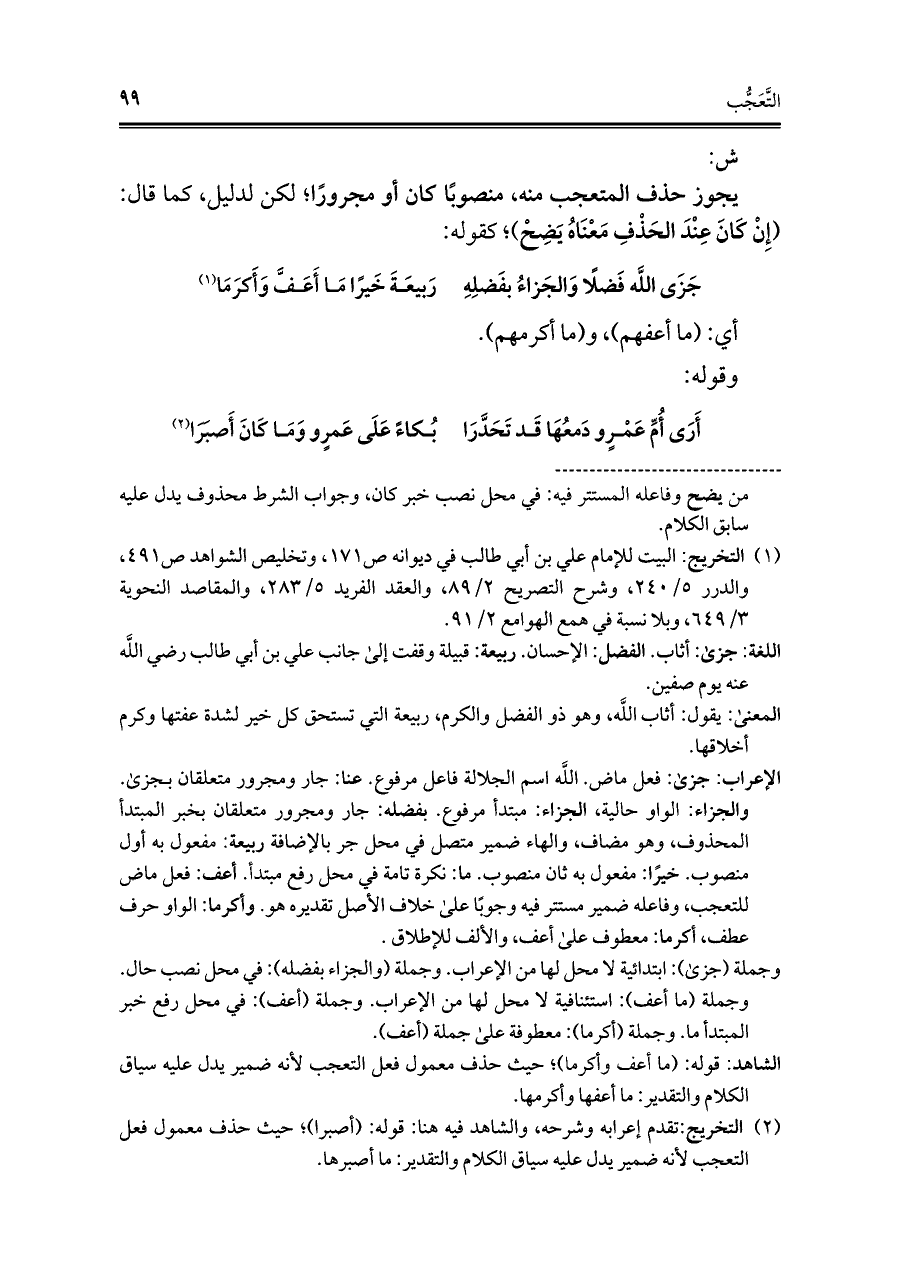 التَّعَجُّب ٩٩
ش:
يجوز حذف المتعجب منه، منصوبًا كان أو مجرورًا؛ لكن لدليل، كما قال:
(إِنْ كَانَ عِنْدَ الحَذْفِ مَعْنَاهُ يَضِحْ)؛ كقوله:
جَزَى اللَّه فَضلًا وَالجَزاءُ بفَضلِهِ رَبيعَـةَ خَيرًا مَـا أَعَـفَّ وَأَكرَمَا(١)
أي: (ما أعفهم)، و(ما أكرمهم).
وقوله:
أَرَى أُمَّ عَمْـرٍو دَمعُهَا قَـد تَحَدَّرَا بُـكاءً عَلَى عَمرٍو وَمَـا كَانَ أَصبَرَا(٢)
من يضح وفاعله المستتر فيه: في محل نصب خبر كان، وجواب الشرط محذوف يدل عليه
سابق الكلام.
(١) التخريج: البيت للإمام علي بن أبي طالب في ديوانه ص١٧١، وتخليص الشواهد ص٤٩١،
والدرر ٥/ ٢٤٠، وشرح التصريح ٢/ ٨٩، والعقد الفريد ٥/ ٢٨٣، والمقاصد النحوية
٣/ ٦٤٩، وبلا نسبة في همع الهوامع ٢/ ٩١.
اللغة: جزىٰ: أثاب. الفضل: الإحسان. ربيعة: قبيلة وقفت إلىٰ جانب علي بن أبي طالب رضي اللَّه
عنه يوم صفين.
المعنىٰ: يقول: أثاب اللَّه، وهو ذو الفضل والكرم، ربيعة التي تستحق كل خير لشدة عفتها وكرم
أخلاقها.
الإعراب: جزىٰ: فعل ماض. اللَّه اسم الجلالة فاعل مرفوع. عنا: جار ومجرور متعلقان بـجزىٰ.
والجزاء: الواو حالية، الجزاء: مبتدأ مرفوع. بفضله: جار ومجرور متعلقان بخبر المبتدأ
المحذوف، وهو مضاف، والهاء ضمير متصل في محل جر بالإضافة ربيعة: مفعول به أول
منصوب. خيرًا: مفعول به ثان منصوب. ما: نكرة تامة في محل رفع مبتدأ. أعف: فعل ماض
للتعجب، وفاعله ضمير مستتر فيه وجوبًا علىٰ خلاف الأصل تقديره هو. وأكرما: الواو حرف
عطف، أكرما: معطوف علىٰ أعف، والألف للإطلاق .
وجملة (جزىٰ): ابتدائية لا محل لها من الإعراب. وجملة (والجزاء بفضله): في محل نصب حال.
وجملة (ما أعف): استئنافية لا محل لها من الإعراب. وجملة (أعف): في محل رفع خبر
المبتدأ ما. وجملة (أكرما): معطوفة علىٰ جملة (أعف).
الشاهد: قوله: (ما أعف وأكرما)؛ حيث حذف معمول فعل التعجب لأنه ضمير يدل عليه سياق
الكلام والتقدير: ما أعفها وأكرمها.
(٢) التخريج:تقدم إعرابه وشرحه، والشاهد فيه هنا: قوله: (أصبرا)؛ حيث حذف معمول فعل
التعجب لأنه ضمير يدل عليه سياق الكلام والتقدير: ما أصبرها.